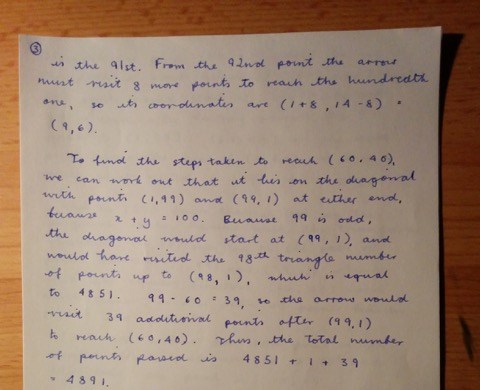 ③
is the 91st. From the 92nd point the arrow
must visit 8 more points to reach the hundredth
one, so its coordinates are (1+8, 14-8) =
(9,6).
To find the steps taken to reach (60,40),
we can work out that it lies on the diagonal
with points (1,99) and (99,1) at either end,
because x + y = 100. Because 99 is odd,
the diagonal would start at (99,1), and
would have visited the 98th triangle number
of points up to (98,1), which is equal
to 4851. 99-60 = 39, so the arrow would
visit 39 additional points after (99,1)
to reach (60,40). Thus, the total number
of points passed is 4851 + 1 + 39
= 4891.